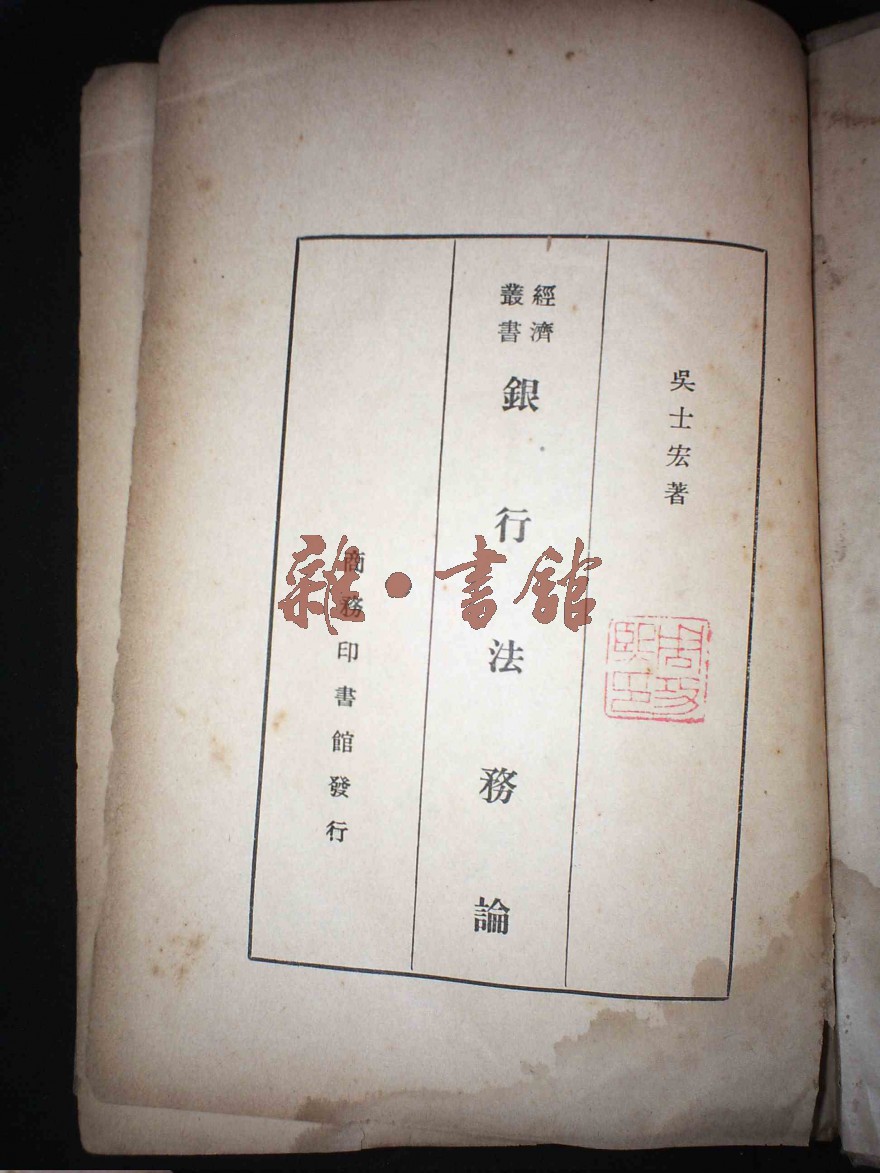 吳士宏著
經濟
叢書
銀行法務論
商務印書館發行
雜·書館